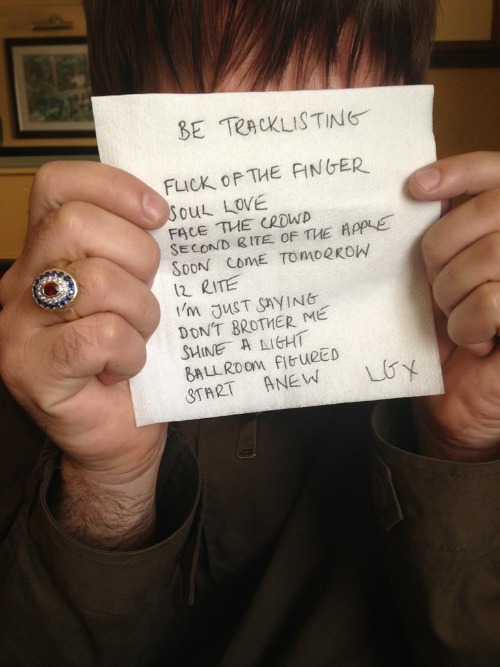 BE TRACKLISTING
FLICK OF THE FINGER
SOUL LOVE
FACE THE CROWD
SECOND BITE OF THE APPLE
SOON COME TOMORROW
12 RITE
I'M JUST SAYING
DON'T BROTHER ME
SHINE A LIGHT
BALLROOM FIGURED
START ANEW LG X